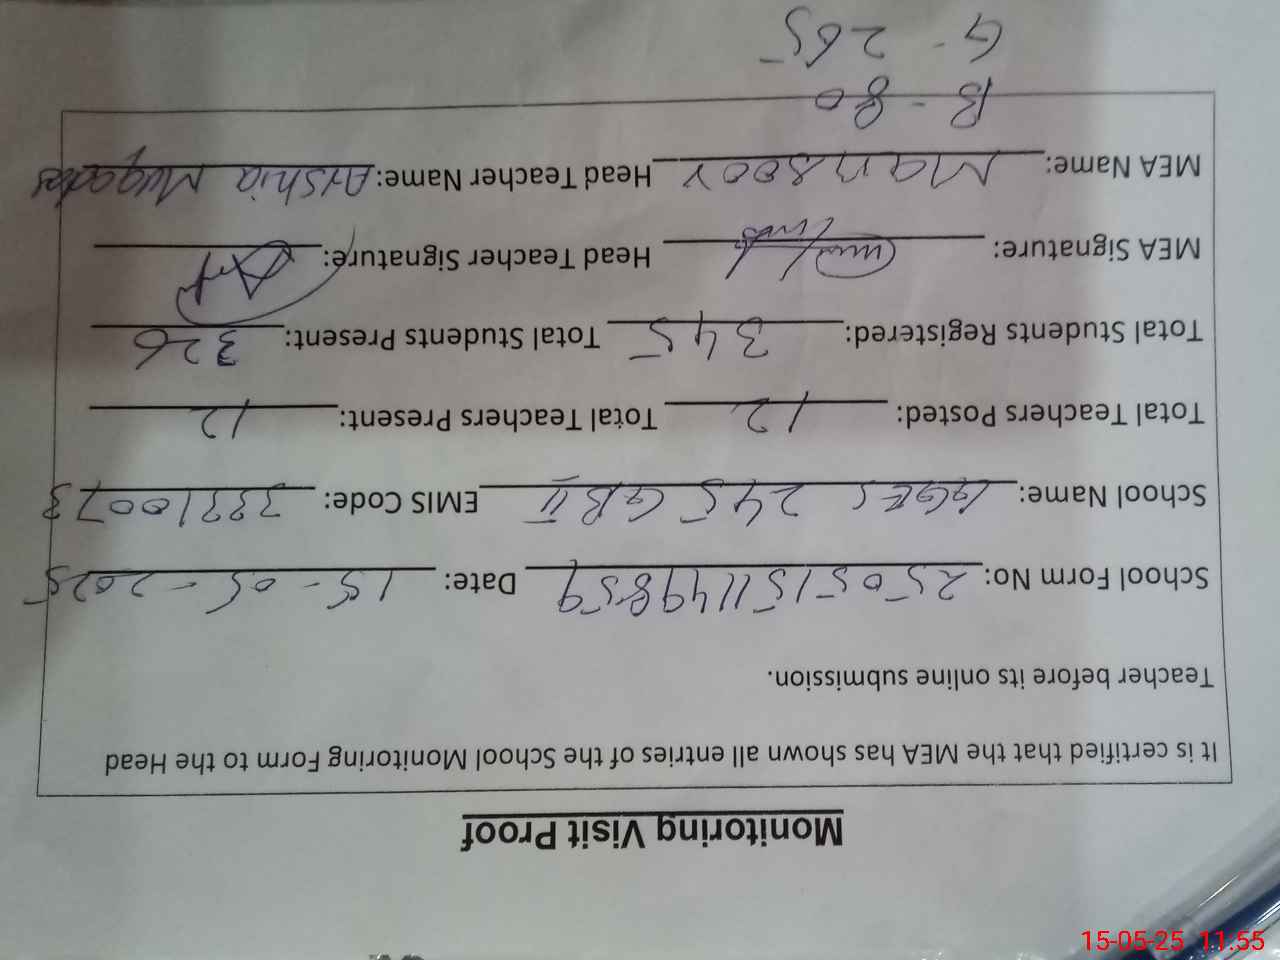 Monitoring Visit Proof
It is certified that the MEA has shown all entries of the School Monitoring Form to the Head
Teacher before its online submission.
School Form No: 2505151149859 Date: 15-05-2025
School Name: GGES 245 GB II EMIS Code: 33310073
Total Teachers Posted: 12 Total Teachers Present: 12
Total Students Registered: 345 Total Students Present: 326
MEA Signature: Head Teacher Signature:
MEA Name: Mansoor Head Teacher Name: Arshia Muqadas
B - 80
G - 265
15-05-25 11:55